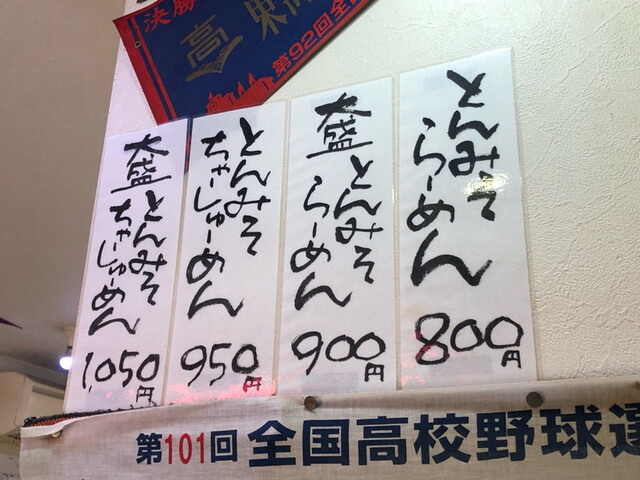 決勝
高
第92回全国
とんみそ
らーめん
800円
大盛
とんみそ
らーめん
900円
とんみそ
ちゃーしゅーめん
950円
大盛
とんみそ
ちゃーしゅーめん
1,050円
第101回 全国高校野球